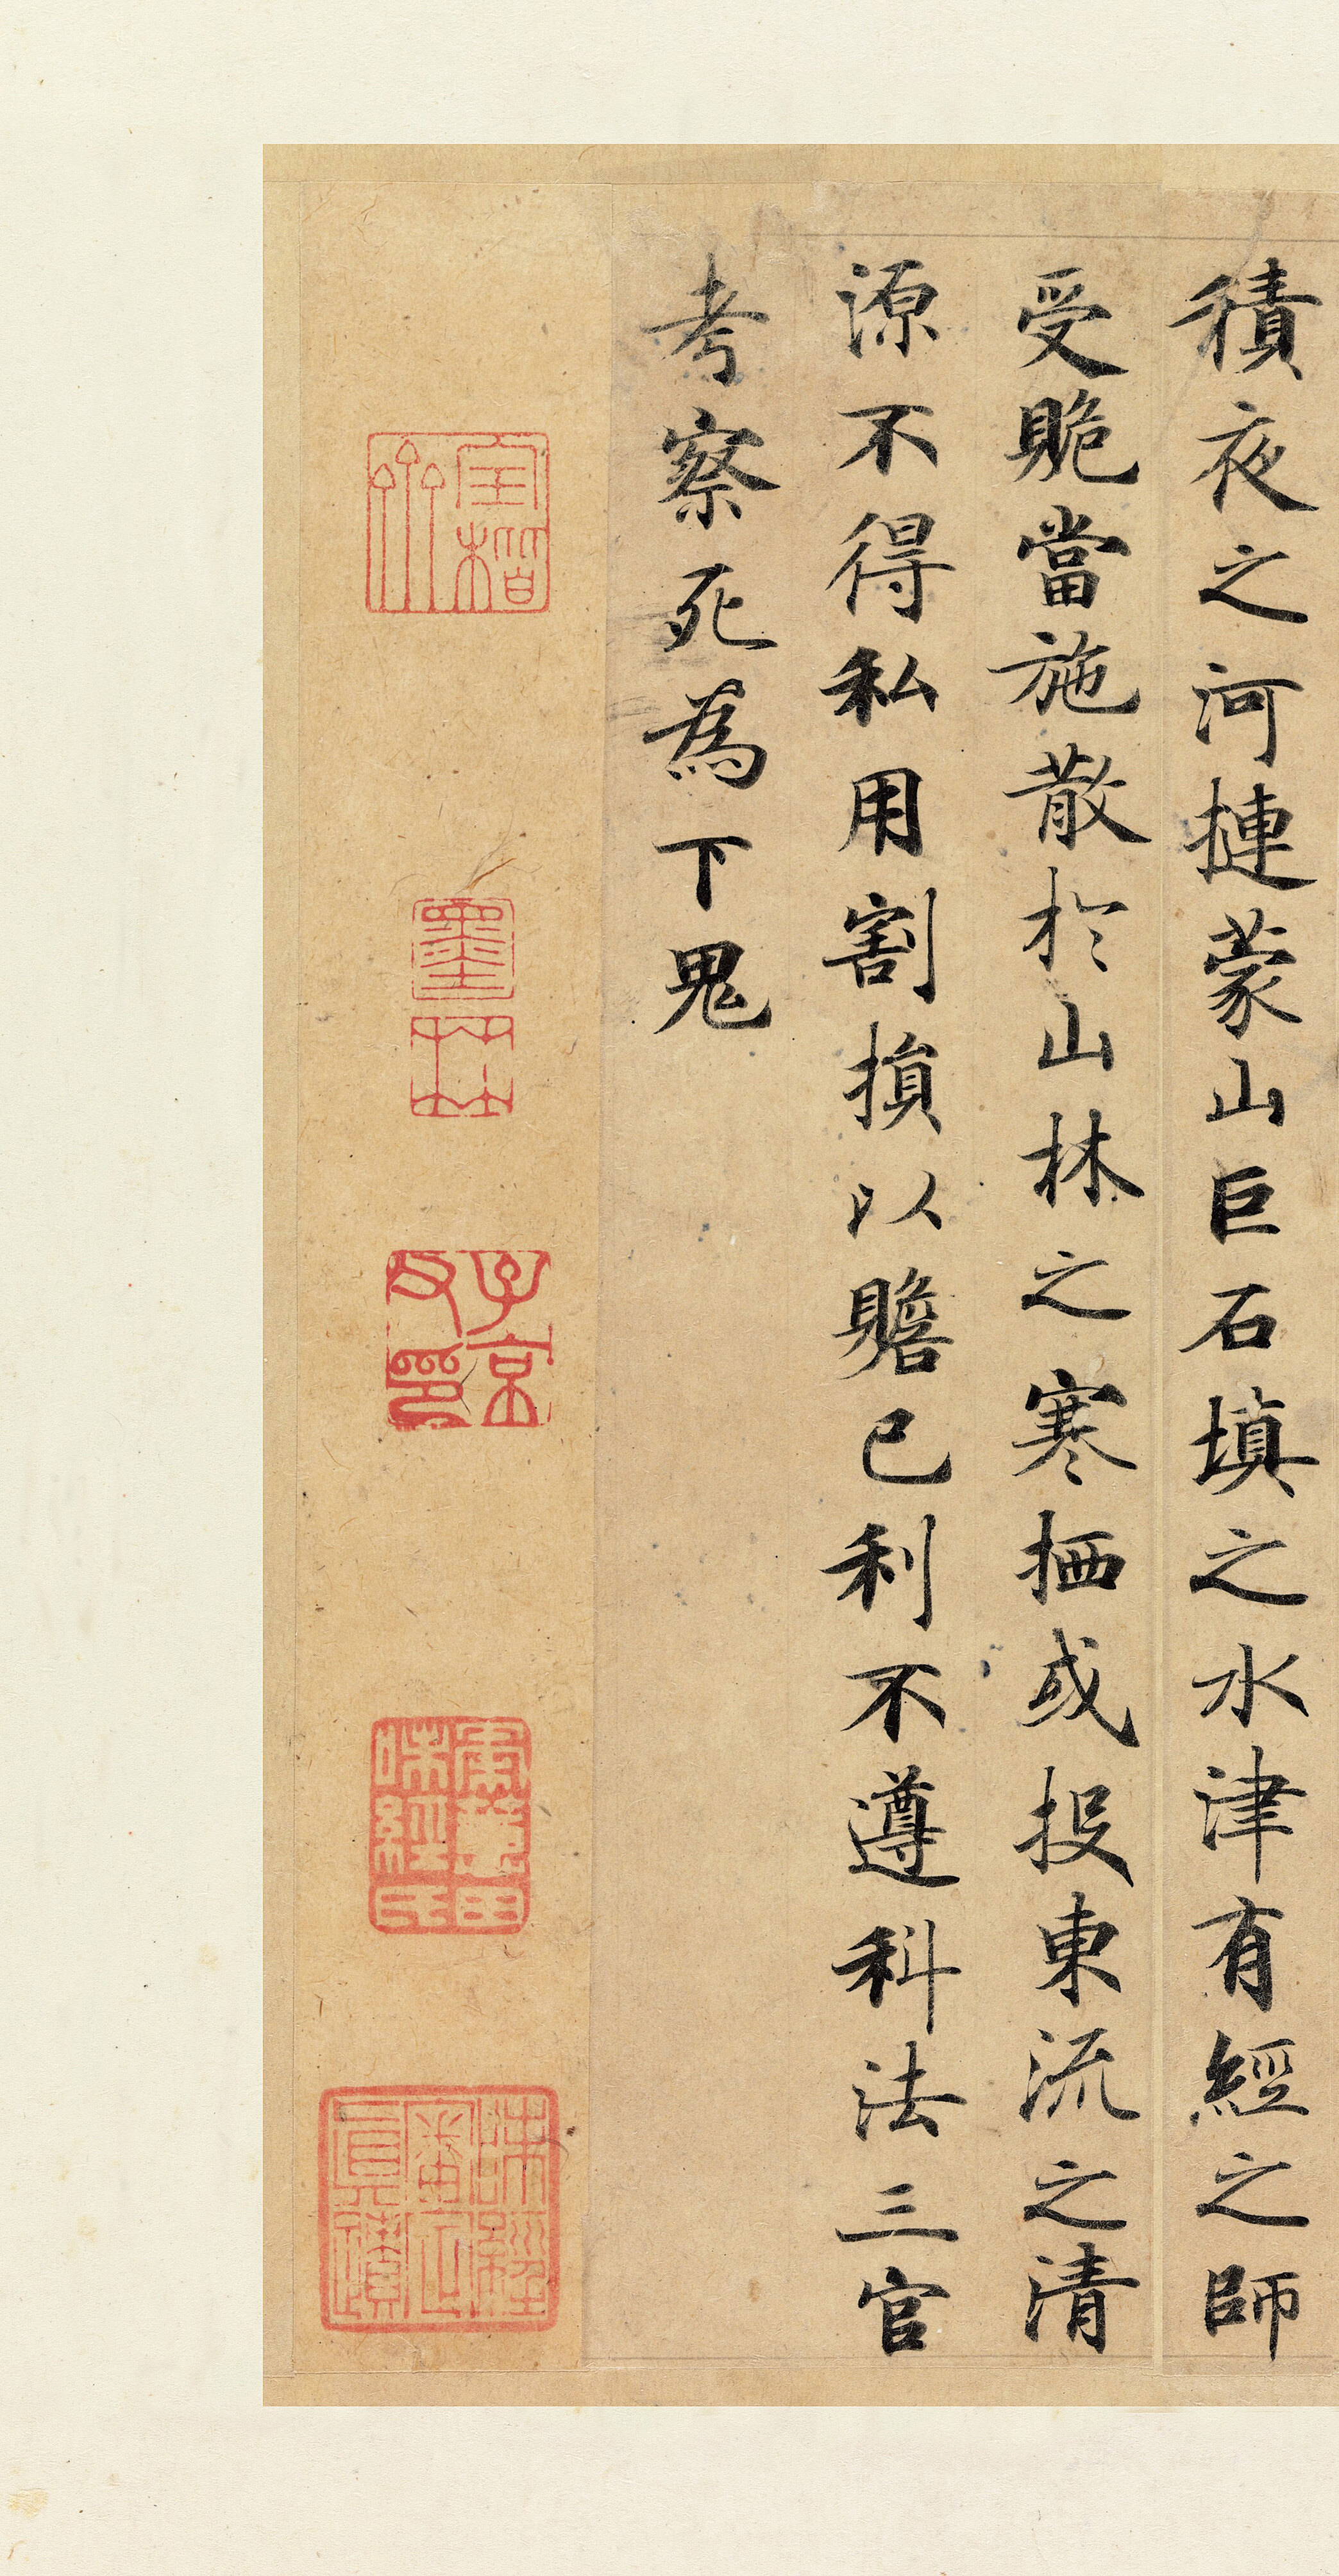 積夜之河摙蒙山巨石填之水津有經之師
受賝當施散於山林之寒栖或投東流之清
源不得私用割損以贍己利不遵科法三官
考察死為下鬼
墨
林
子京
父印